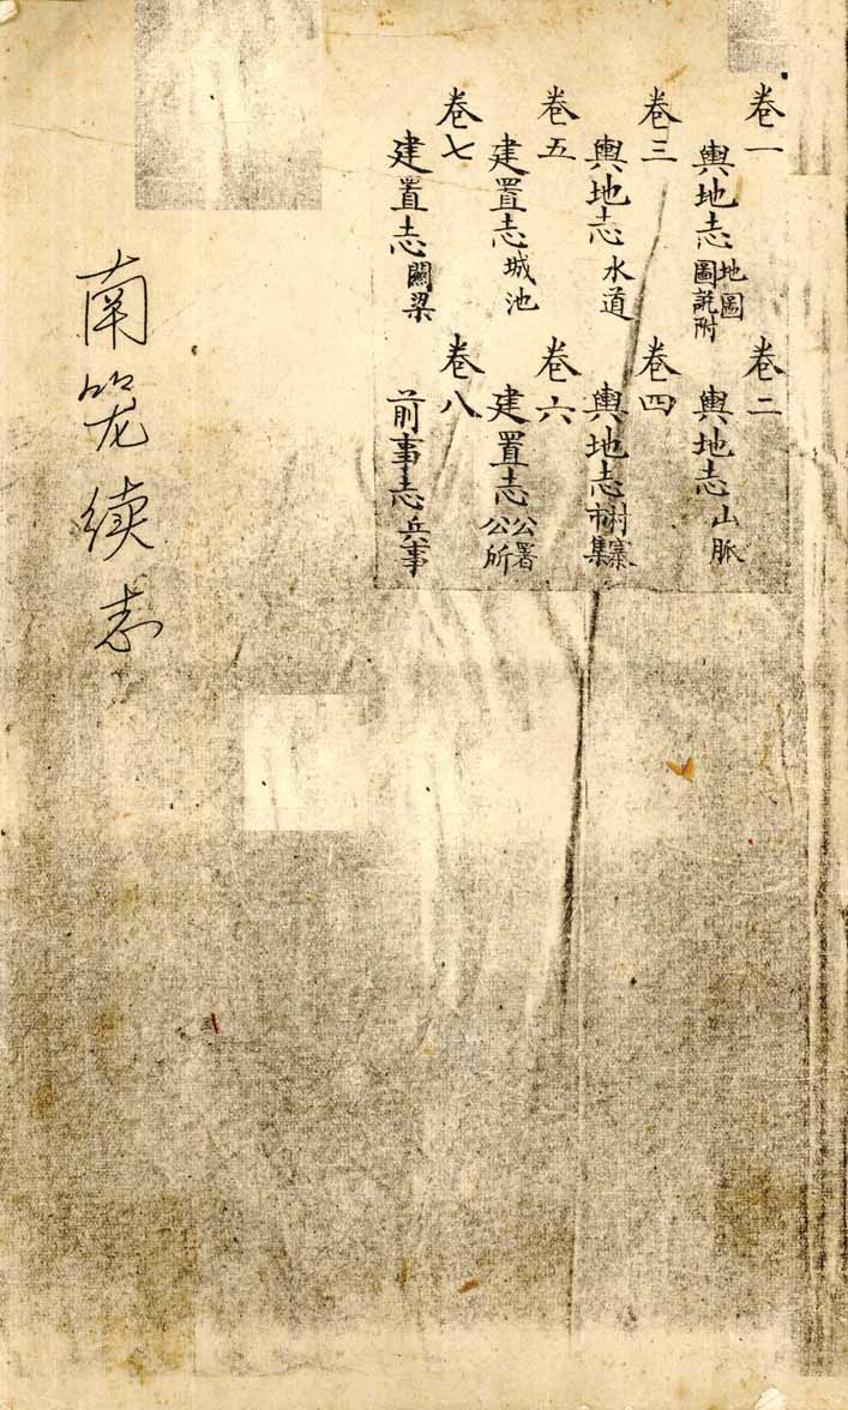 卷一
輿地志 地圖 圖説附
卷二
輿地志 山脈
卷三
輿地志 水道
卷四
輿地志 村寨 市集
卷五
建置志 城池
卷六
建置志 公署 公所
卷七
建置志 關梁
卷八
前事志 兵事
南笼续志